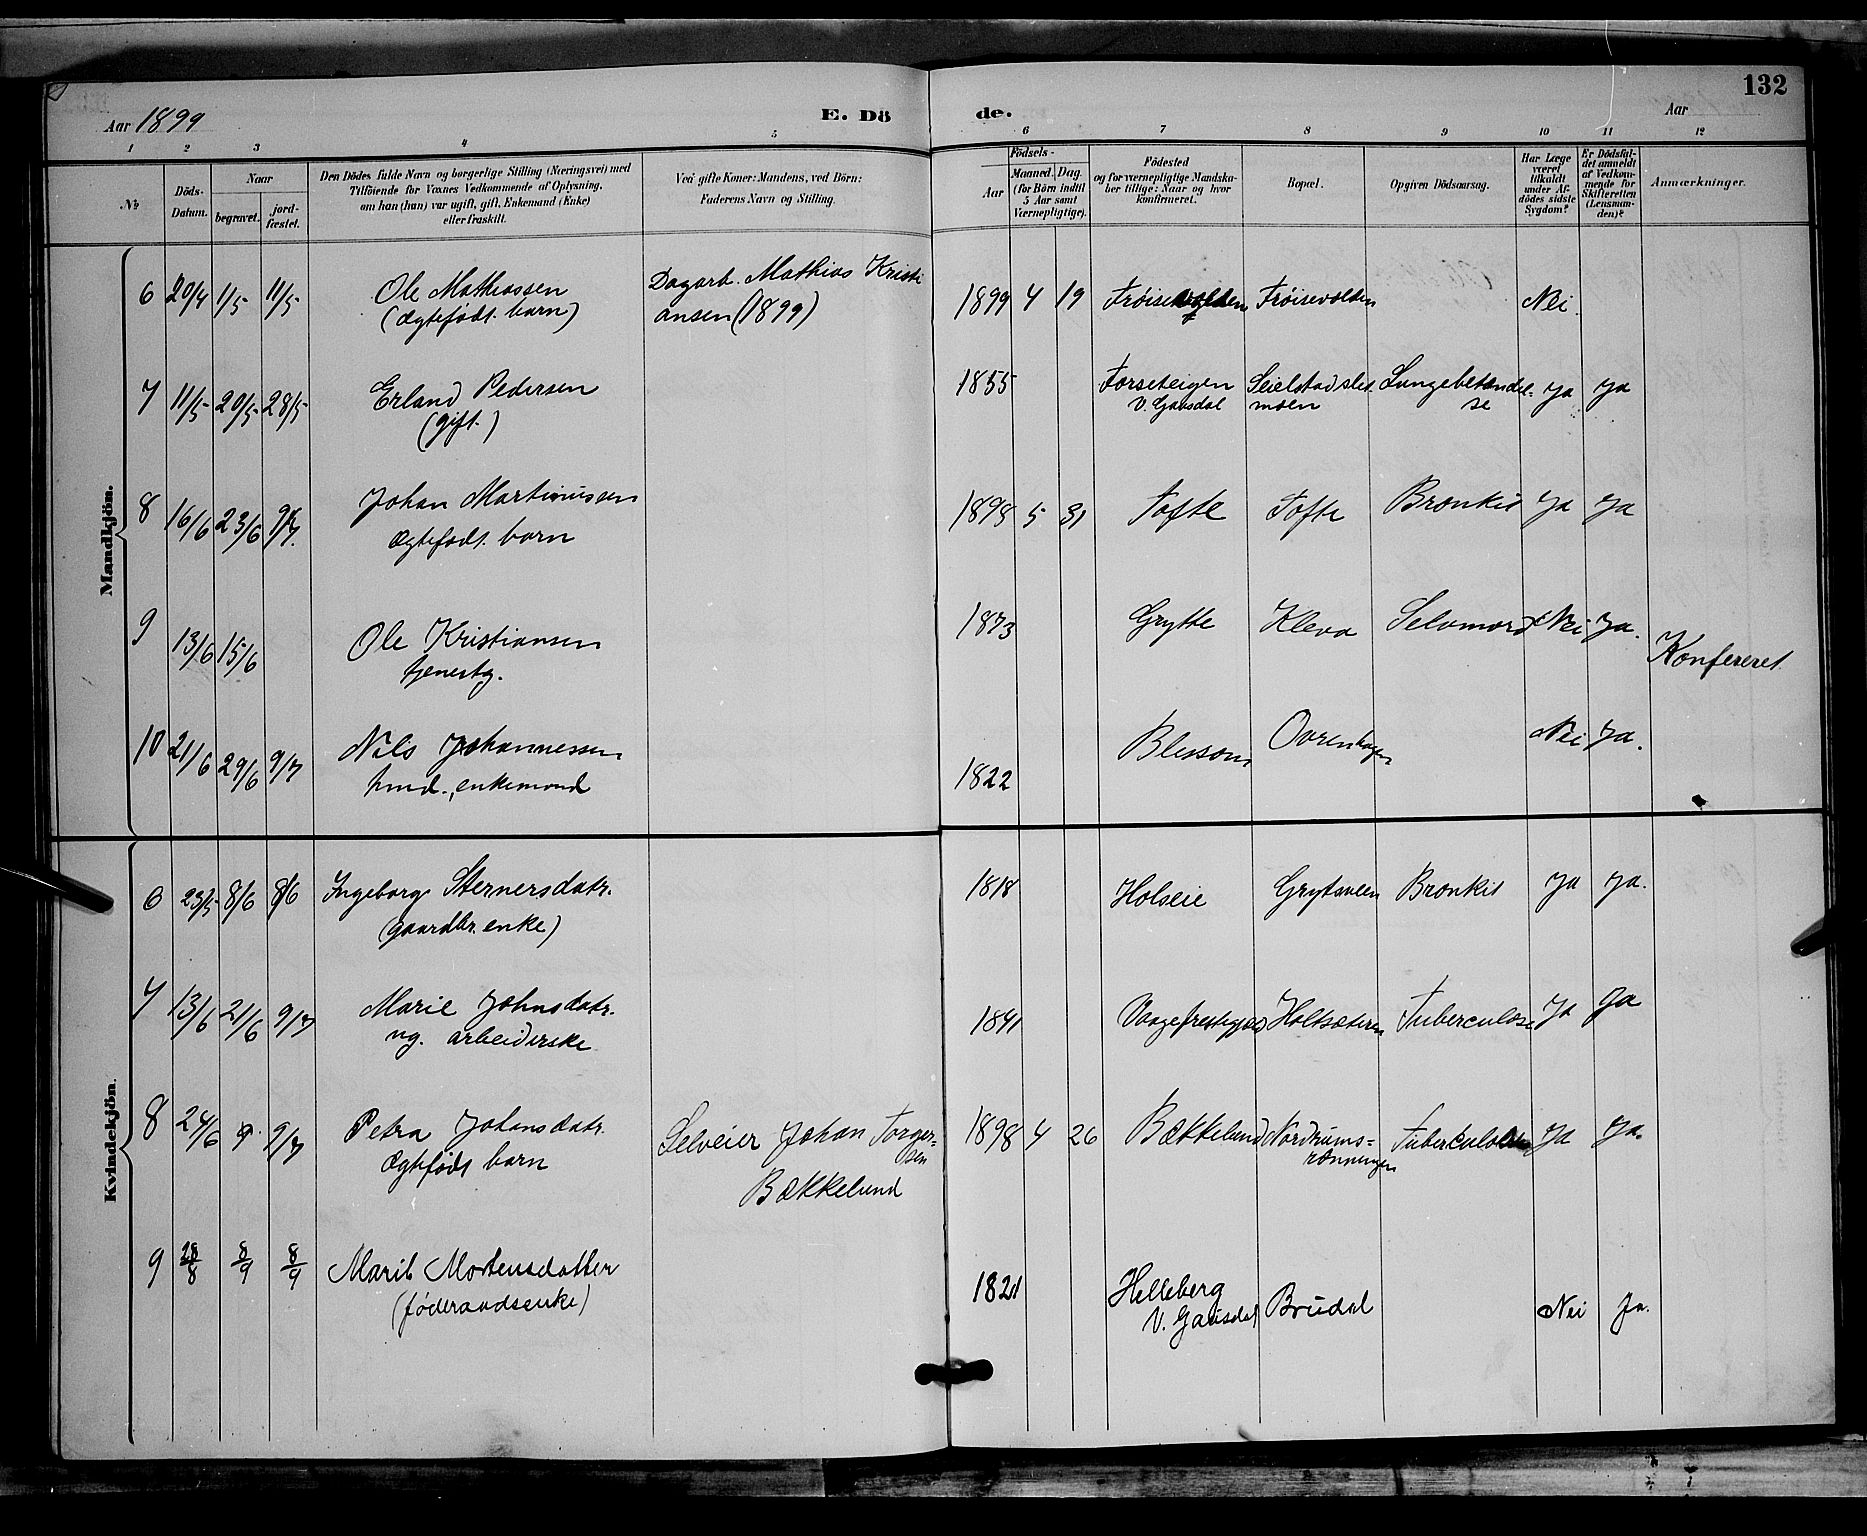 132
Aar 1899 E. Dö de. Aar
1 2 3 4 5 6 7 8 9 10 11 12
No Döds-Datum. Naar begravet. jord-fæstet. Den Dödes fulde Navn og borgerlige Stilling (Næringsvei) med Tilföiende for Voxnes Vedkommende af Oplysning, om han (hun) var ugift, gift, Enkemand (Enke) eller fraskilt. Ved gifte Koner: Mandens, ved Börn: Faderens Navn og Stilling. Födsels- Aar Maaned. Dag. (for Börn indtil 5 Aar samt Værnepligtige). Födested og for værnepligtige Mandskaber tillige: Naar og hvor konfirmeret. Bopæl. Opgiven Dödsaarsag. Har Læge været tilkaldt under Afdödes sidste Sygdom? Er Dödsfaldet anmeldt af Vedkommende for Skifteretten (Lensmanden)? Anmærkninger.
Mandkjön.
6 20/4 1/5 11/5 Ole Mathiassen Dagarb. Mathias Kristi 1899 4 19 Frøisevolden Frøisevolden Nei.
(Ægtefødt. barn) ansen (1899)
7 11/5 20/5 28/5 Erland Pedersen 1855 Forseteigen Seielstadslet Lungebetændel- Ja Ja
(gift.) V. Gausdal moen se
8 16/6 23/6 9/7. Johan Martinussen 1898 5 31 Tofte Tofte Bronkit Ja Ja
Ægtefødt. barn
9 13/6 15/6 Ole Kristiansen 1873 Grytte Kleva Selvmord Nei Ja.
tjenestg. Konfereret
10 21/6 29/6 9/7 Nils Johannessen Blessom Ovrenhagen Nei Ja.
hmd., enkemand 1822
Kvindekjön.
6 23/5 8/6 8/6 Ingeborg Sternersdatr. 1818 Holseie Grytsveen Bronkit Ja Ja.
(gaardbr. enke)
7 13/6 21/6 9/7 Marie Johnsdatr. 1841 Vaageprestegjæld Holtsæteren Tuberculose Ja Ja
ug. arbeiderske
8 24/6 9/7 Petra Johansdatr. Selveier Johan Torger- 1898 4 26 Bækkelund Nordrums- Tuberculose Ja Ja.
Ægtefødt barn sen rønningen
Bækkelund
9 28/8 8/9 8/9 Marit Mortensdatter 1821 Helleberg Brudal Nei Ja.
(føderaadsenke) V. Gausdal